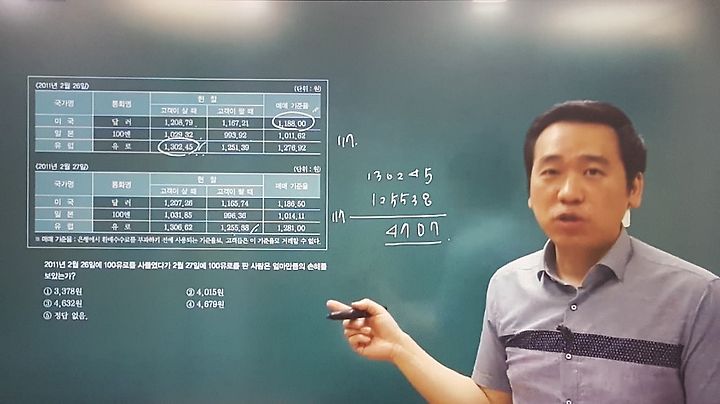 〈2011년 2월 26일〉 (단위 : 원)
국가명 통화명 현 찰 매매 기준율
고객이 살 때 고객이 팔 때
미 국 달 러 1,208.79 1,167.21 1,188.00
일 본 100엔 1,029.32 993.92 1,011.62
유 럽 유 로 1,302.45 1,251.39 1,276.92
〈2011년 2월 27일〉 (단위 : 원)
국가명 통화명 현 찰 매매 기준율
고객이 살 때 고객이 팔 때
미 국 달 러 1,207.26 1,165.74 1,186.50
일 본 100엔 1,031.85 996.36 1,014.11
유 럽 유 로 1,306.62 1,255.38 1,281.00
※ 매매 기준율 : 은행에서 환매수수료를 부과하기 전에 사용되는 기준율로, 고객들은 이 기준율로 거래할 수 없다.
2011년 2월 26일에 100유로를 사들였다가 2월 27일에 100유로를 판 사람은 얼마만큼의 손해를
보았는가?
① 3,378원 ② 4,015원
③ 4,632원 ④ 4,679원
⑤ 정답 없음.
130245
125538
4707